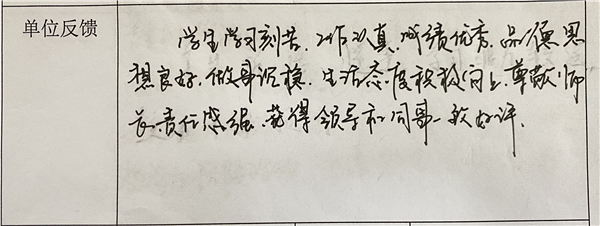 单位反馈
学生学习刻苦,工作认真,成绩优秀,品德思
想良好,做事沉稳,生活态度积极向上,尊敬师
长,责任感强,获得领导和同事一致好评。